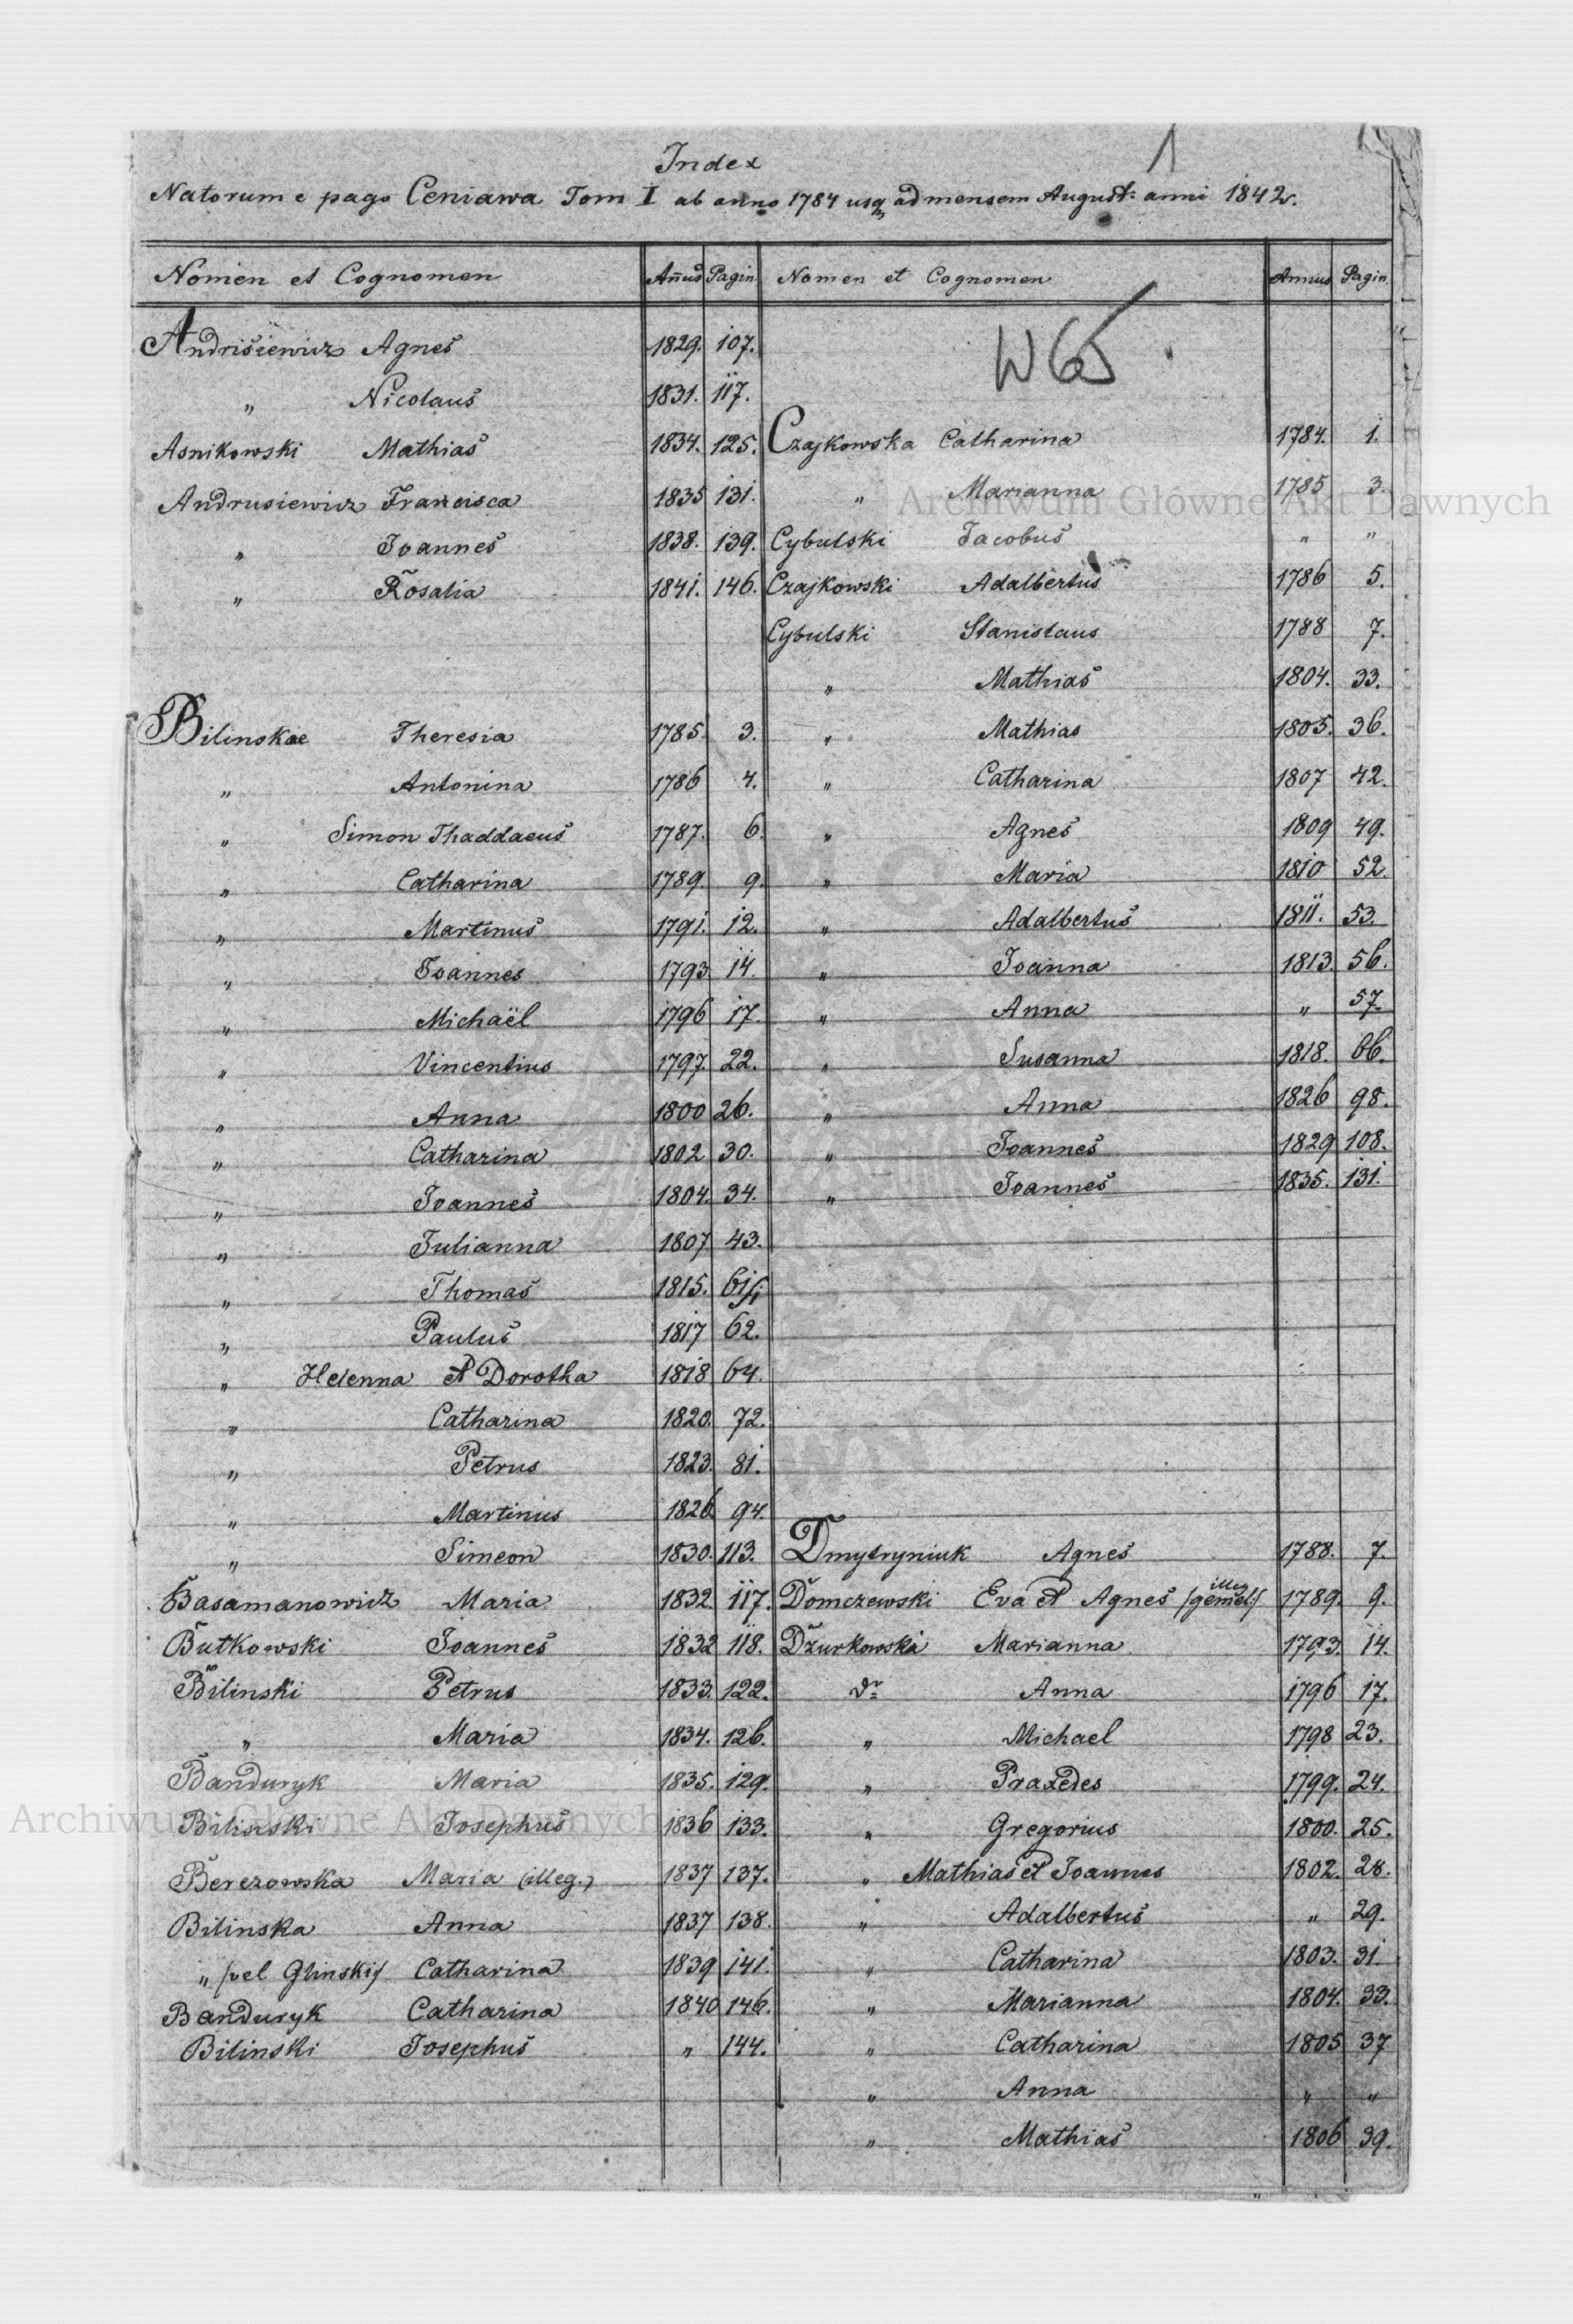 1
Index
Natorum e pago Ceniawa Tom I ab anno 1784 usq. ad mensem August: anni 1842.
Nomen et Cognomen Annus Pagin.
Andrisiewicz Agnes 1829. 107.
" Nicolaus 1831. 117.
Asnikowski Mathias 1834. 125.
Andrusiewicz Francisca 1835 131.
" Joannes 1838. 139.
" Rosalia 1841. 146.
Bilinskae Theresia 1785. 3.
" Antonina 1786 4.
" Simon Thaddaeus 1787. 6.
" Catharina 1789. 9.
" Martinus 1791. 12.
" Joannes 1793 14.
" Michaël 1796 17.
" Vincentius 1797. 22.
" Anna 1800 26.
" Catharina 1802 30.
" Joannes 1804. 34.
" Julianna 1807 43.
" Thomas 1815. 61/1
" Paulus 1817 62.
" Helenna et Dorotha 1818 64.
" Catharina 1820. 72.
" Petrus 1823. 81.
" Martinus 1826. 94.
" Simeon 1830. 113.
Basamanowicz Maria 1832. 117.
Butkowski Joannes 1832 118.
Bilinski Petrus 1833. 122.
" Maria 1834. 126.
Banduryk Maria 1835. 129.
Bilinski Josephus 1836 133.
Berezowska Maria (illeg.) 1837 137.
Bilinska Anna 1837 138.
" /vel Glinski/ Catharina 1839 141.
Banduryk Catharina 1840 146.
Bilinski Josephus " 144.
Nomen et Cognomen Annus Pagin.
W65
Czajkowska Catharina 1784. 1.
" Marianna 1785 3.
Cybulski Jacobus " "
Czajkowski Adalbertus 1786 5.
Cybulski Stanislaus 1788 7.
" Mathias 1804. 33.
" Mathias 1805. 36.
" Catharina 1807 42.
" Agnes 1809 49.
" Maria 1810 52.
" Adalbertus 1811. 53.
" Joanna 1813. 56.
" Anna " 57.
" Susanna 1818. 66.
" Anna 1826 98.
" Joannes 1829 108.
" Joannes 1835. 131.
Dmytryniuk Agnes 1788. 7.
Domczewski Eva et Agnes /illeg gemel:/ 1789. 9.
Dzurkowska Marianna 1793. 14.
dº Anna 1796 17.
" Michael 1798 23.
" Praxedes 1799. 24.
" Gregorius 1800. 25.
" Mathias et Joannes 1802. 28.
" Adalbertus " 29.
" Catharina 1803. 31.
" Marianna 1804. 33.
" Catharina 1805 37
" Anna " "
" Mathias 1806 39.
Archiwum Główne Akt Dawnych
Archiwum Główne Akt Dawnych